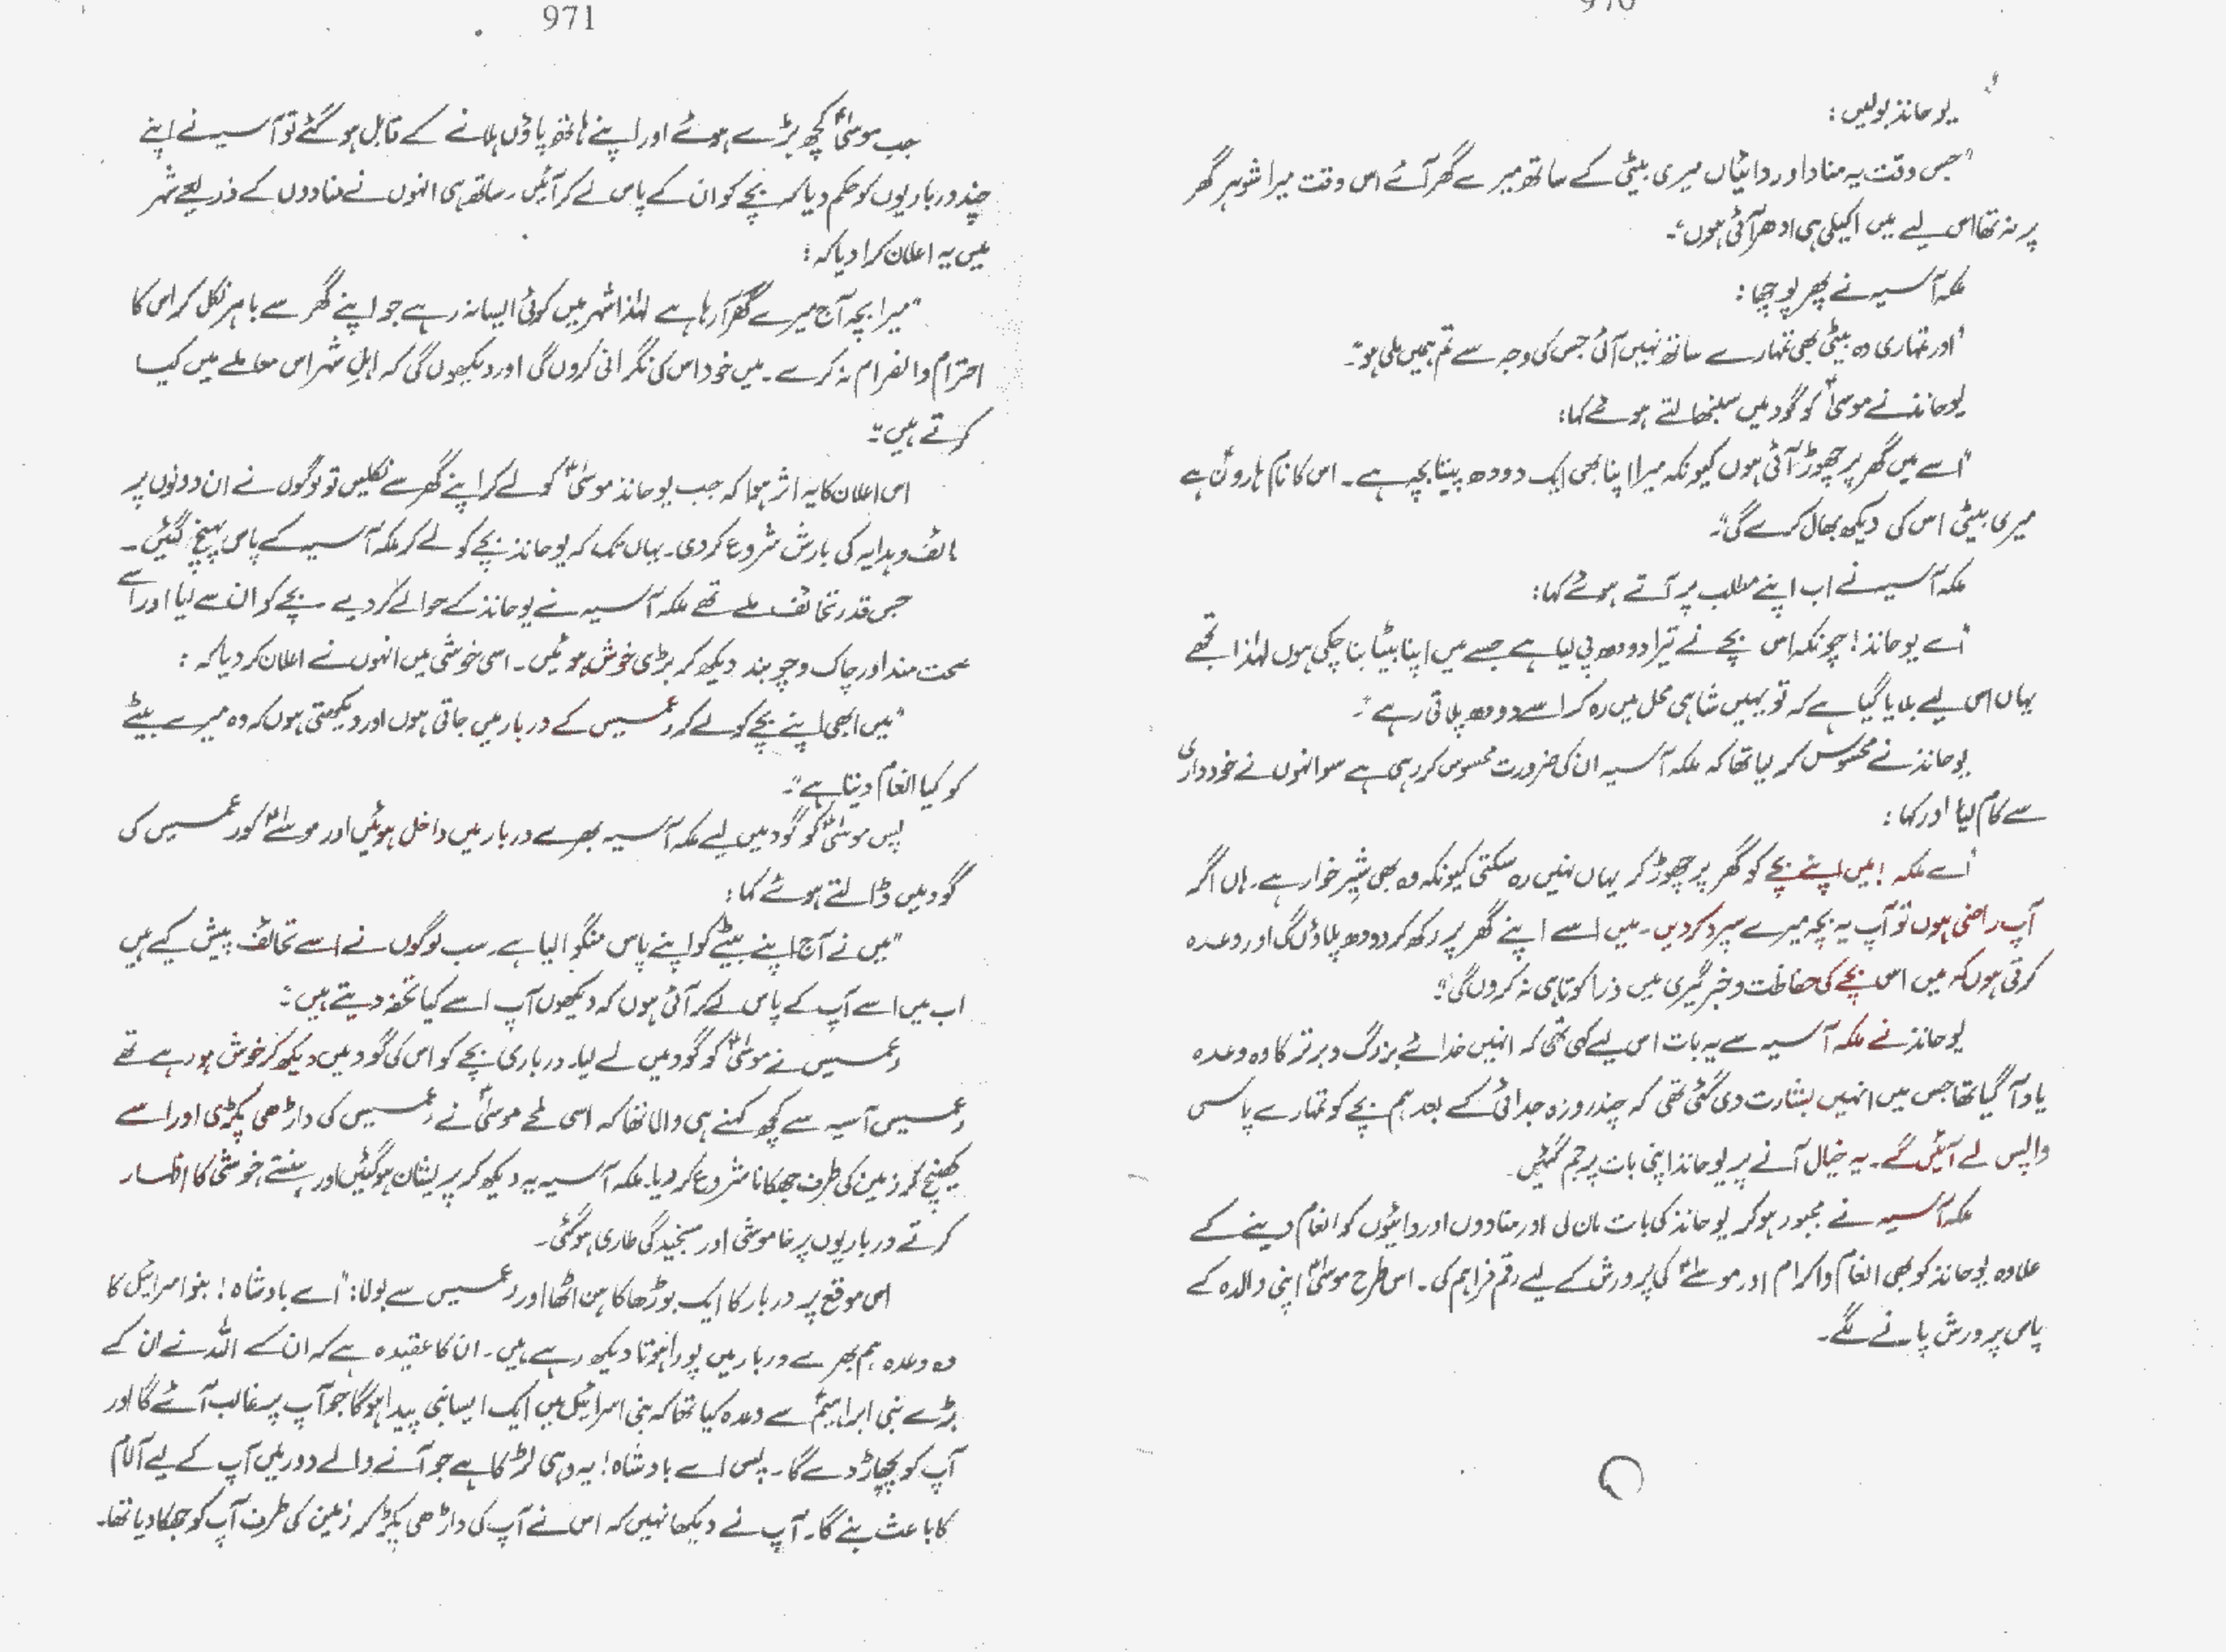 970
یوحانذ بولیں :
"جس وقت یہ مناد اور دائیاں میری بیٹی کے ساتھ میرے گھر آئے اس وقت میرا شوہر گھر
پر نہ تھا اس لیے میں اکیلی ہی ادھر آئی ہوں"۔
ملکہ آسیہ نے پھر پوچھا :
"اور تمہاری وہ بیٹی بھی تمہارے ساتھ نہیں آئی جس کی وجہ سے تم ہمیں ملی ہو"۔
یوحانذ نے موسیٰؑ کو گود میں سنبھالتے ہوئے کہا :
"اسے میں گھر پر چھوڑ آئی ہوں کیونکہ میرا اپنا بھی ایک دودھ پیتا بچہ ہے۔ اس کا نام ہارونؑ ہے
میری بیٹی اس کی دیکھ بھال کرے گی"۔
ملکہ آسیہ نے اب اپنے مطلب پر آتے ہوئے کہا :
"اے یوحانذ! چونکہ اس بچے نے تیرا دودھ پی لیا ہے جسے میں اپنا بیٹا بنا چکی ہوں لہٰذا تجھے
یہاں اس لیے بلایا گیا ہے کہ تو یہیں شاہی محل میں رہ کر اسے دودھ پلاتی رہے"۔
یوحانذ نے محسوس کر لیا تھا کہ ملکہ آسیہ ان کی ضرورت محسوس کر رہی ہے سو انہوں نے خودداری
سے کام لیا اور کہا :
"اے ملکہ! میں اپنے بچے کو گھر پر چھوڑ کر یہاں نہیں رہ سکتی کیونکہ وہ بھی شیر خوار ہے۔ ہاں اگر
آپ راضی ہوں تو آپ یہ بچہ میرے سپرد کر دیں۔ میں اسے اپنے گھر پر رکھ کر دودھ پلاؤں گی اور وعدہ
کرتی ہوں کہ میں اس بچے کی حفاظت و خبر گیری میں ذرا کوتاہی نہ کروں گی"۔
یوحانذ نے ملکہ آسیہ سے یہ بات اس لیے کہی تھی کہ انہیں خدائے بزرگ و برتر کا وہ وعدہ
یاد آ گیا تھا جس میں انہیں بشارت دی گئی تھی کہ چند روزہ جدائی کے بعد ہم بچے کو تمہارے پاس
واپس لے آئیں گے۔ یہ خیال آنے پر یوحانذ اپنی بات پر جم گئیں۔
ملکہ آسیہ نے مجبور ہو کر یوحانذ کی بات مان لی اور منادوں اور دائیوں کو انعام دینے کے
علاوہ یوحانذ کو بھی انعام و اکرام اور موسیٰؑ کی پرورش کے لیے رقم فراہم کی۔ اس طرح موسیٰؑ اپنی والدہ کے
پاس پرورش پانے لگے۔
971
جب موسیٰؑ کچھ بڑے ہوئے اور اپنے ہاتھ پاؤں ہلانے کے قابل ہو گئے تو آسیہ نے اپنے
چند درباریوں کو حکم دیا کہ بچے کو ان کے پاس لے کر آئیں۔ ساتھ ہی انہوں نے منادوں کے ذریعے شہر
میں یہ اعلان کرا دیا کہ :
"میرا بچہ آج میرے گھر آ رہا ہے لہٰذا شہر میں کوئی ایسا نہ رہے جو اپنے گھر سے باہر نکل کر اس کا
احترام و انصرام نہ کرے۔ میں خود اس کی نگرانی کروں گی اور دیکھوں گی کہ اہلِ شہر اس معاملے میں کیا
کرتے ہیں"۔
اس اعلان کا یہ اثر ہوا کہ جب یوحانذ موسیٰؑ کو لے کر اپنے گھر سے نکلیں تو لوگوں نے ان دونوں پر
ائف و ہدایہ کی بارش شروع کر دی۔ یہاں تک کہ یوحانذ بچے کو لے کر ملکہ آسیہ کے پاس پہنچ گئیں۔
جس قدر تحائف ملے تھے ملکہ آسیہ نے یوحانذ کے حوالے کر دیے۔ بچے کو ان سے لیا اور اسے
صحت مند اور چاک و چوبند دیکھ کر بڑی خوش ہوئیں۔ اسی خوشی میں انہوں نے اعلان کر دیا کہ :
"میں ابھی اپنے بچے کو لے کر رعمسیس کے دربار میں جاتی ہوں اور دیکھتی ہوں کہ وہ میرے بیٹے
کو کیا انعام دیتا ہے"۔
پس موسیٰؑ کو گود میں لیے ملکہ آسیہ بھرے دربار میں داخل ہوئیں اور موسیٰؑ کو رعمسیس کی
گود میں ڈالتے ہوئے کہا :
"میں نے آج اپنے بیٹے کو اپنے پاس منگوا لیا ہے۔ سب لوگوں نے اسے تحائف پیش کیے ہیں
اب میں اسے آپ کے پاس لے کر آئی ہوں کہ دیکھوں آپ اسے کیا تحفہ دیتے ہیں"۔
رعمسیس نے موسیٰؑ کو گود میں لے لیا۔ درباری بچے کو اس کی گود میں دیکھ کر خوش ہو رہے تھے
رعمسیس آسیہ سے کچھ کہنے ہی والا تھا کہ اسی لمحے موسیٰؑ نے رعمسیس کی داڑھی پکڑی اور اسے
کھینچ کر زمین کی طرف جھکانا شروع کر دیا۔ ملکہ آسیہ یہ دیکھ کر پریشان ہو گئیں اور ہنستے خوشی کا اظہار
کرتے درباریوں پر خاموشی اور سنجیدگی طاری ہو گئی۔
اس موقع پر دربار کا ایک بوڑھا کاہن اٹھا اور رعمسیس سے بولا : "اے بادشاہ! بنو اسرائیل کا
وہ وعدہ ہم بھرے دربار میں پورا ہوتا دیکھ رہے ہیں۔ ان کا عقیدہ ہے کہ ان کے اللہ نے ان کے
بڑے نبی ابراہیمؑ سے وعدہ کیا تھا کہ بنی اسرائیل میں ایک ایسا نبی پیدا ہو گا جو آپ پر غالب آئے گا اور
آپ کو پچھاڑ دے گا۔ پس اے بادشاہ! یہ وہی لڑکا ہے جو آنے والے دور میں آپ کے لیے آلام
کا باعث بنے گا۔ آپ نے دیکھا نہیں کہ اس نے آپ کی داڑھی پکڑ کر زمین کی طرف آپ کو جھکا دیا تھا۔